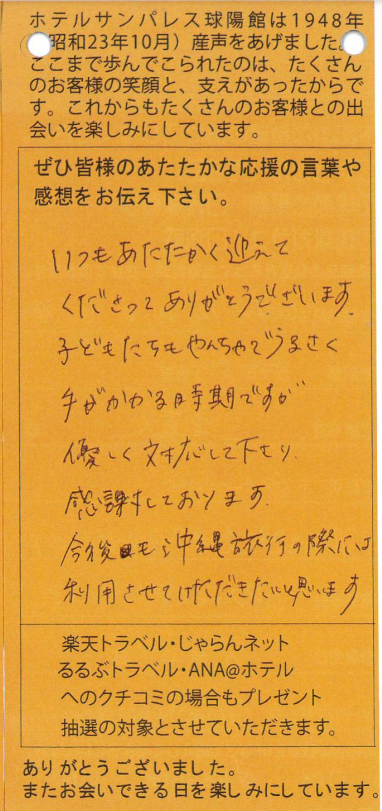 ホテルサンパレス球陽館は1948年
昭和23年10月）産声をあげました。
ここまで歩んでこられたのは、たくさん
のお客様の笑顔と、支えがあったからで
す。これからもたくさんのお客様との出
会いを楽しみにしています。
ぜひ皆様のあたたかな応援の言葉や
感想をお伝え下さい。
いつもあたたかく迎えて
くださってありがとうございます.
子どもたちもやんちゃでうるさく
手がかかる時期ですが
優しく対応して下さり.
感謝しております.
今後も沖縄旅行の際には
利用させていただきたいと思います
楽天トラベル・じゃらんネット
るるぶトラベル・ANA@ホテル
へのクチコミの場合もプレゼント
抽選の対象とさせていただきます。
ありがとうございました。
またお会いできる日を楽しみにしています。